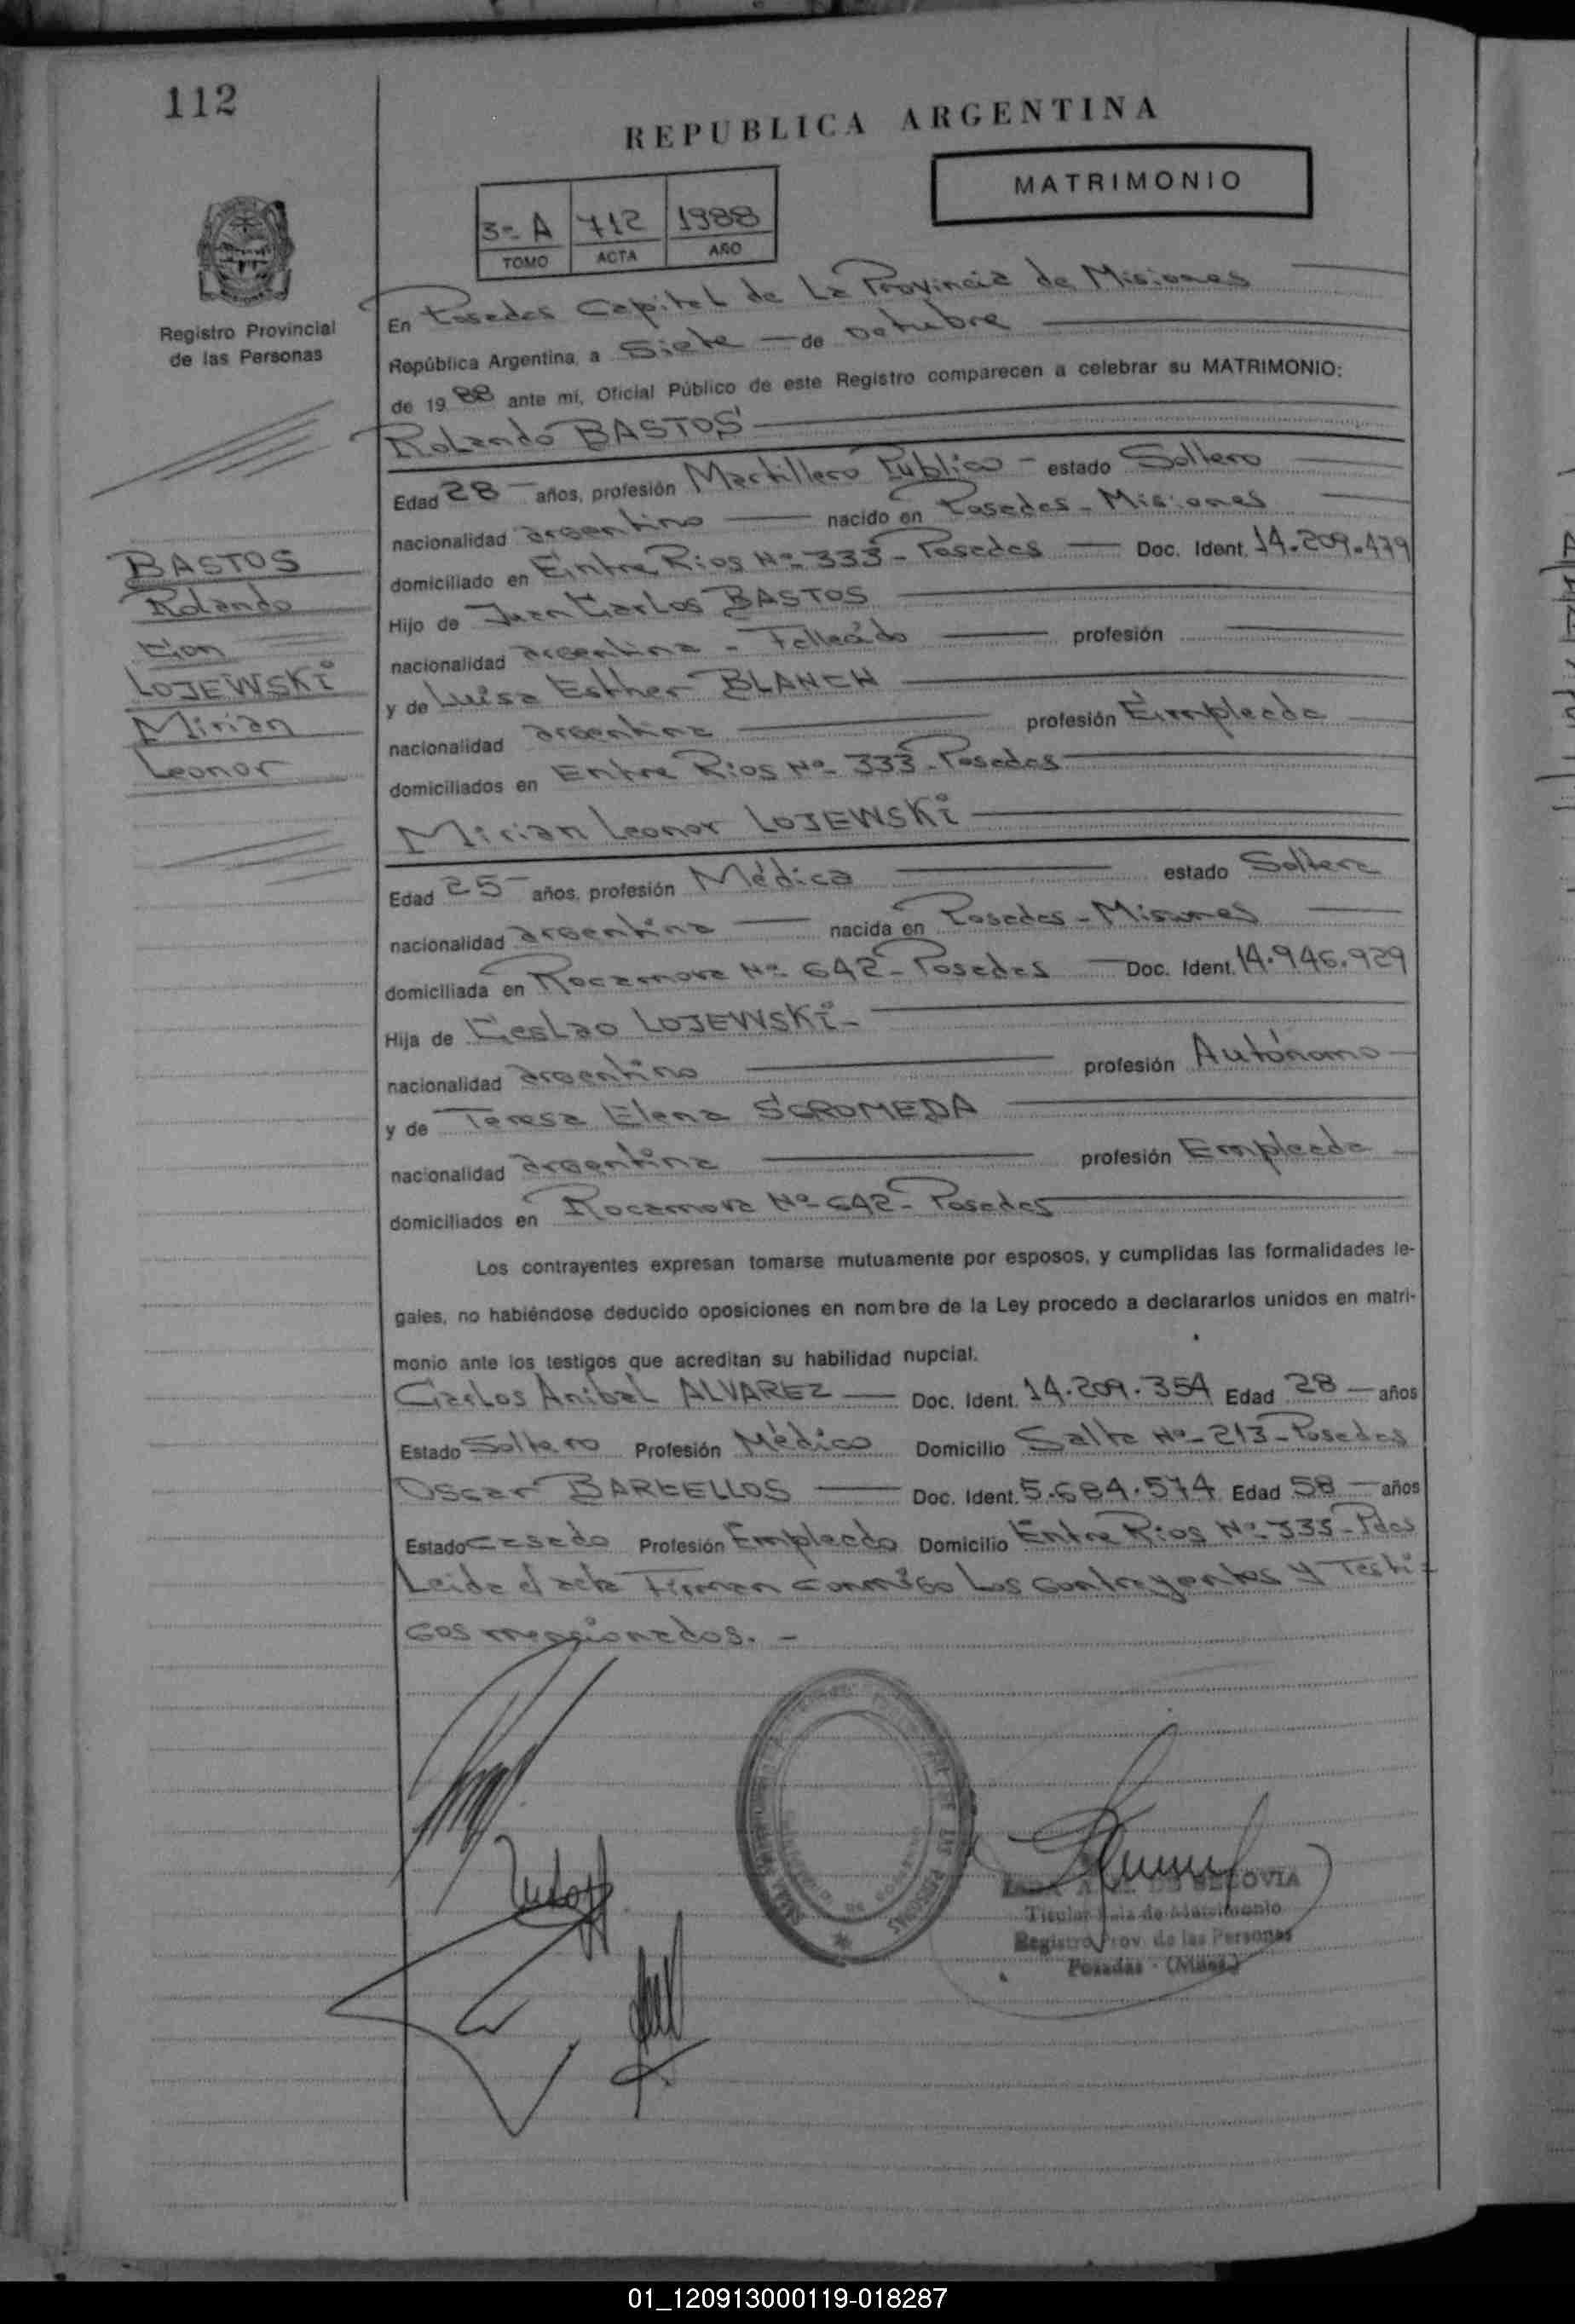 112
REPUBLICA ARGENTINA
MATRIMONIO
3º A 712 1988
TOMO ACTA AÑO
Registro Provincial
de las Personas
En Posadas Capital de La Provincia de Misiones
República Argentina, a Siete de Octubre
de 1988 ante mí, Oficial Público de este Registro comparecen a celebrar su MATRIMONIO:
Rolando BASTOS
Edad 28 años, profesión Martillero Publico estado Soltero
nacionalidad argentino nacido en Posadas - Misiones
domiciliado en Entre Rios Nº 333 - Posadas Doc. Ident. 14.209.479
Hijo de Juan Carlos BASTOS
nacionalidad argentina - Fallecido profesión
y de Luisa Esther BLANCH
nacionalidad argentina profesión Empleada
domiciliados en Entre Rios Nº 333 - Posadas
BASTOS
Rolando
Con
LOJEWSKI
Mirian
Leonor
Mirian Leonor LOJEWSKI
Edad 25 años, profesión Médica estado Soltera
nacionalidad argentina nacida en Posadas - Misiones
domiciliada en Rocamora Nº 642 - Posadas Doc. Ident. 14.946.929
Hija de Ceslao LOJEWSKI -
nacionalidad argentino profesión Autónomo
y de Teresa Elena SGROMEDA
nacionalidad argentina profesión Empleada
domiciliados en Rocamora Nº 642 - Posadas
Los contrayentes expresan tomarse mutuamente por esposos, y cumplidas las formalidades le-
gales, no habiéndose deducido oposiciones en nombre de la Ley procedo a declararlos unidos en matri-
monio ante los testigos que acreditan su habilidad nupcial.
Carlos Anibal ALVAREZ Doc. Ident. 14.209.354 Edad 28 años
Estado Soltero Profesión Médico Domicilio Salta Nº 213 - Posadas
Oscar BARCELLOS Doc. Ident. 5.684.574 Edad 58 años
Estado casado Profesión Empleado Domicilio Entre Rios Nº 333 - Pdas
Leida el acta Firman conmigo Los contrayentes y Testi-
gos mencionados. -
DE SEGOVIA
Titular Sala de Matrimonio
Registro Prov. de las Personas
Posadas - (Mnes.)
01_120913000119-018287